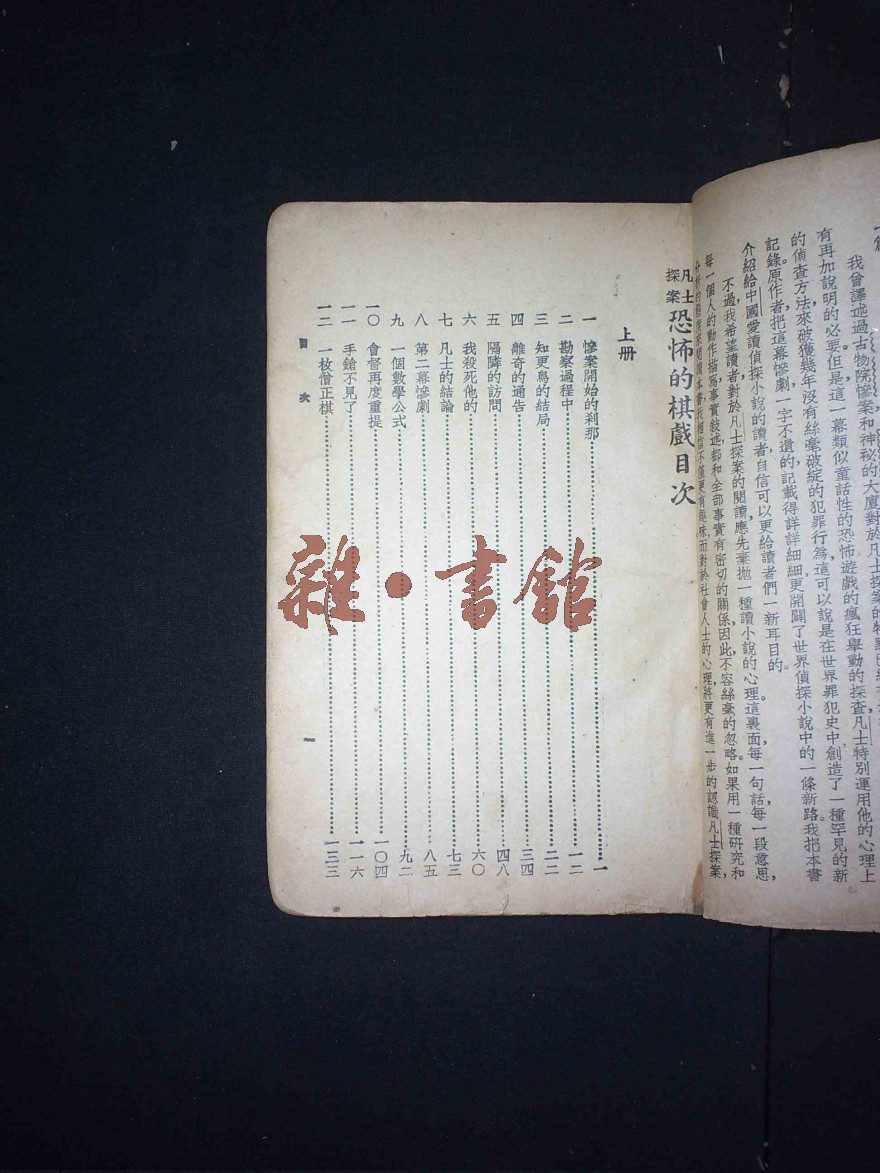 我曾譯述過古物院慘案和神秘的大廈對於凡士探案的特點已
有再加說明的必要但是這一幕類似童話性的恐怖遊戲的瘋狂舉動的探查凡士特別運用他的心理上
的偵查方法來破獲幾年沒有絲毫破綻的犯罪行為這可以說是在世界罪犯史中創造了一種罕見的新
記錄。原作者把這幕慘劇一字不遺的記載得詳詳細細更開闢了世界偵探小說中的一條新路。我把本書
介紹給中國愛讀偵探小說的讀者自信可以更給讀者們一新耳目的。
不過我希望讀者對於凡士探案的閱讀應先棄拋一種讀小說的心理。這裏面每一句話每一段意思,
每一個人的動作描寫事實敍述都和全部事實有密切的關係因此不容絲毫的忽略。如果用一種研究和
本書我相信不僅更有趣味而對於社會人士的心理將更有進一步的認識凡士探案,
凡士探案 恐怖的棋戲目次
上册
一 慘案開始的刹那 一
二 勘察過程中 一二
三 知更鳥的結局 二二
四 離奇的通告 三四
五 隔隣的訪問 四八
六 我殺死他的 六〇
七 凡士的結論 七三
八 第二幕慘劇 八五
九 一個數學公式 九二
一〇 會督再度重提 一〇四
一一 手鎗不見了 一一六
一二 一枚僧正棋 一三三
目次
一
雜·書館